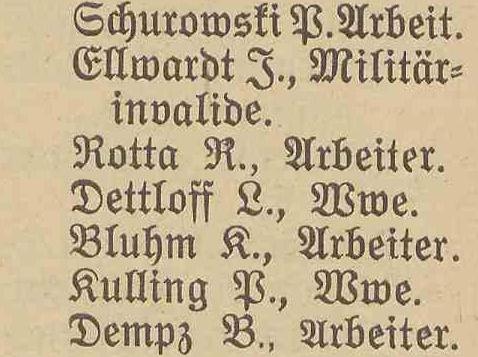 Schurowski P. Arbeit.
Ellwardt J., Militär-
invalide.
Rotta R., Arbeiter.
Dettloff L., Wwe.
Bluhm K., Arbeiter.
Kulling P., Wwe.
Dempz B., Arbeiter.